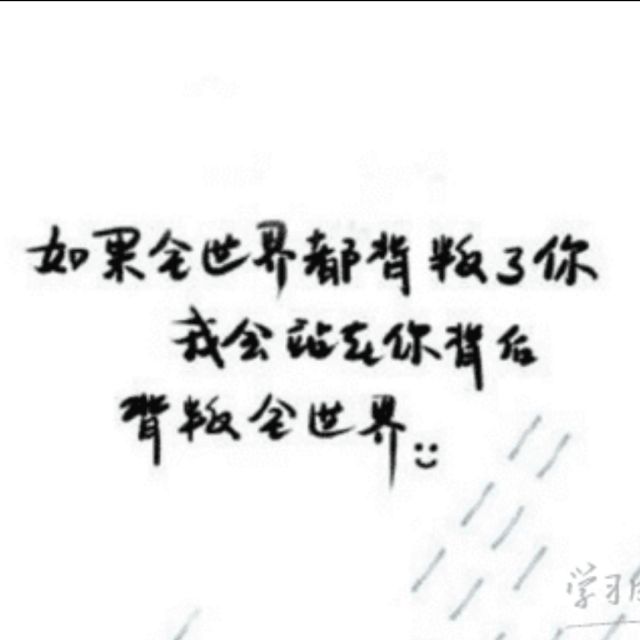 如果全世界都背叛了你
我会站在你背后
背叛全世界
学习